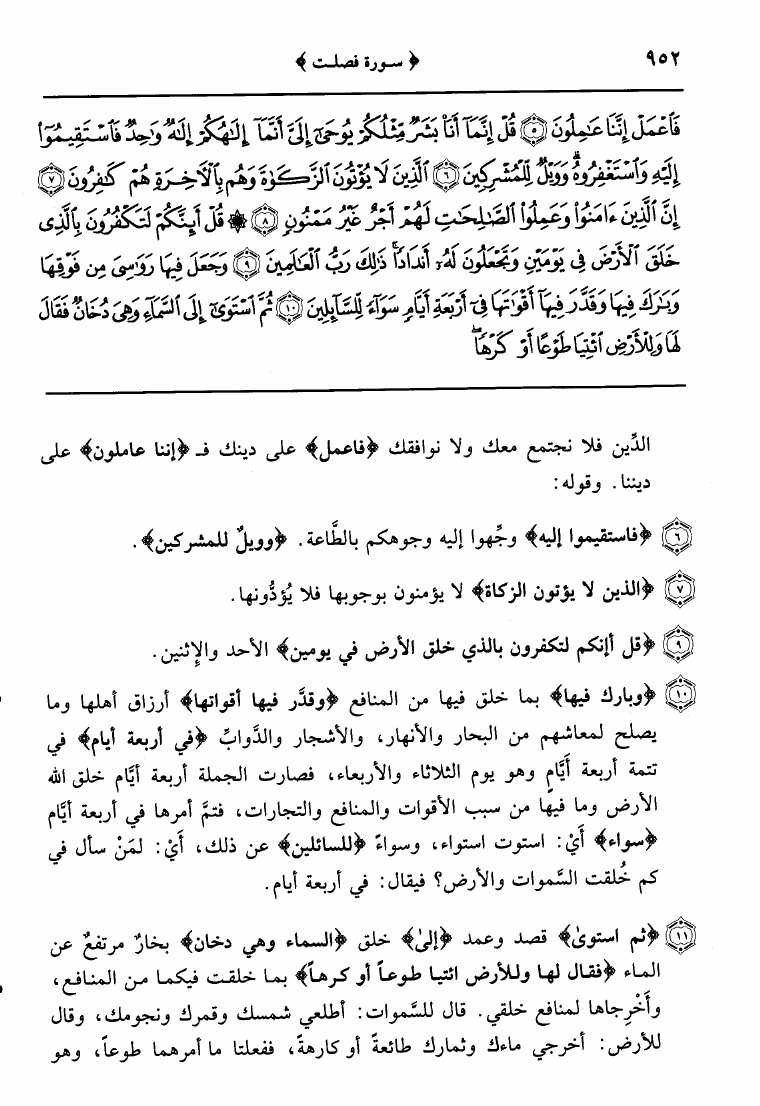 ٩٥٢ ﴿ سورة فصلت ﴾
فَٱعۡمَلۡ إِنَّنَا عَـٰمِلُونَ ٥ قُلۡ إِنَّمَآ أَنَا۠ بَشَرٌ مِّثۡلُكُمۡ يُوحَىٰٓ إِلَىَّ أَنَّمَآ إِلَـٰهُكُمۡ إِلَـٰهٌ وَٰحِدٌ فَٱسۡتَقِيمُوٓا۟
إِلَيۡهِ وَٱسۡتَغۡفِرُوهُۗ وَوَيۡلٌ لِّلۡمُشۡرِكِينَ ٦ ٱلَّذِينَ لَا يُؤۡتُونَ ٱلزَّكَوٰةَ وَهُم بِٱلۡأَخِرَةِ هُمۡ كَـٰفِرُونَ ٧
إِنَّ ٱلَّذِينَ ءَامَنُوا۟ وَعَمِلُوا۟ ٱلصَّـٰلِحَـٰتِ لَهُمۡ أَجۡرٌ غَيۡرُ مَمۡنُونٍ ٨ ۞ قُلۡ أَئِنَّكُمۡ لَتَكۡفُرُونَ بِٱلَّذِى
خَلَقَ ٱلۡأَرۡضَ فِى يَوۡمَيۡنِ وَتَجۡعَلُونَ لَهُۥٓ أَندَادًاۚ ذَٰلِكَ رَبُّ ٱلۡعَـٰلَمِينَ ٩ وَجَعَلَ فِيهَا رَوَٰسِىَ مِن فَوۡقِهَا
وَبَـٰرَكَ فِيهَا وَقَدَّرَ فِيهَآ أَقۡوَٰتَهَا فِىٓ أَرۡبَعَةِ أَيَّامٍ سَوَآءً لِّلسَّآئِلِينَ ١٠ ثُمَّ ٱسۡتَوَىٰٓ إِلَى ٱلسَّمَآءِ وَهِىَ دُخَانٌ فَقَالَ
لَهَا وَلِلۡأَرۡضِ ٱئۡتِيَا طَوۡعًا أَوۡ كَرۡهًاۖ
الدِّين فلا نجتمع معك ولا نوافقك ﴿فاعمل﴾ على دينك فـ ﴿إننا عاملون﴾ على
ديننا. وقوله:
٦ ﴿فاستقيموا إليه﴾ وجِّهوا إليه وجوهكم بالطَّاعة. ﴿وويلٌ للمشركين﴾.
٧ ﴿الذين لا يؤتون الزكاة﴾ لا يؤمنون بوجوبها فلا يُؤدُّونها.
٩ ﴿قل أإنكم لتكفرون بالذي خلق الأرض في يومين﴾ الأحد والإثنين.
١٠ ﴿وبارك فيها﴾ بما خلق فيها من المنافع ﴿وقدَّر فيها أقواتها﴾ أرزاق أهلها وما
يصلح لمعاشهم من البحار والأنهار، والأشجار والدَّوابِّ ﴿في أربعة أيام﴾ في
تتمة أربعة أَيَّامٍ وهو يوم الثلاثاء والأربعاء، فصارت الجملة أربعة أيَّام خلق الله
الأرض وما فيها من سبب الأقوات والمنافع والتجارات، فتمَّ أمرها في أربعة أيَّام
﴿سواء﴾ أَيْ: استوت استواء، وسواءً ﴿للسائلين﴾ عن ذلك، أَيْ: لمَنْ سأل في
كم خُلقت السَّموات والأرض؟ فيقال: في أربعة أيام.
١١ ﴿ثم استوىٰ﴾ قصد وعمد ﴿إلىٰ﴾ خلق ﴿السماء وهي دخان﴾ بخارٌ مرتفعٌ عن
الماء ﴿فقال لها وللأرض ائتيا طوعاً أو كرهاً﴾ بما خلقت فيكما من المنافع،
وأَخْرِجاها لمنافع خلقي. قال للسَّموات: أطلعي شمسك وقمرك ونجومك، وقال
للأرض: أخرجي ماءك وثمارك طائعةً أو كارهةً، ففعلتا ما أمرهما طوعاً، وهو